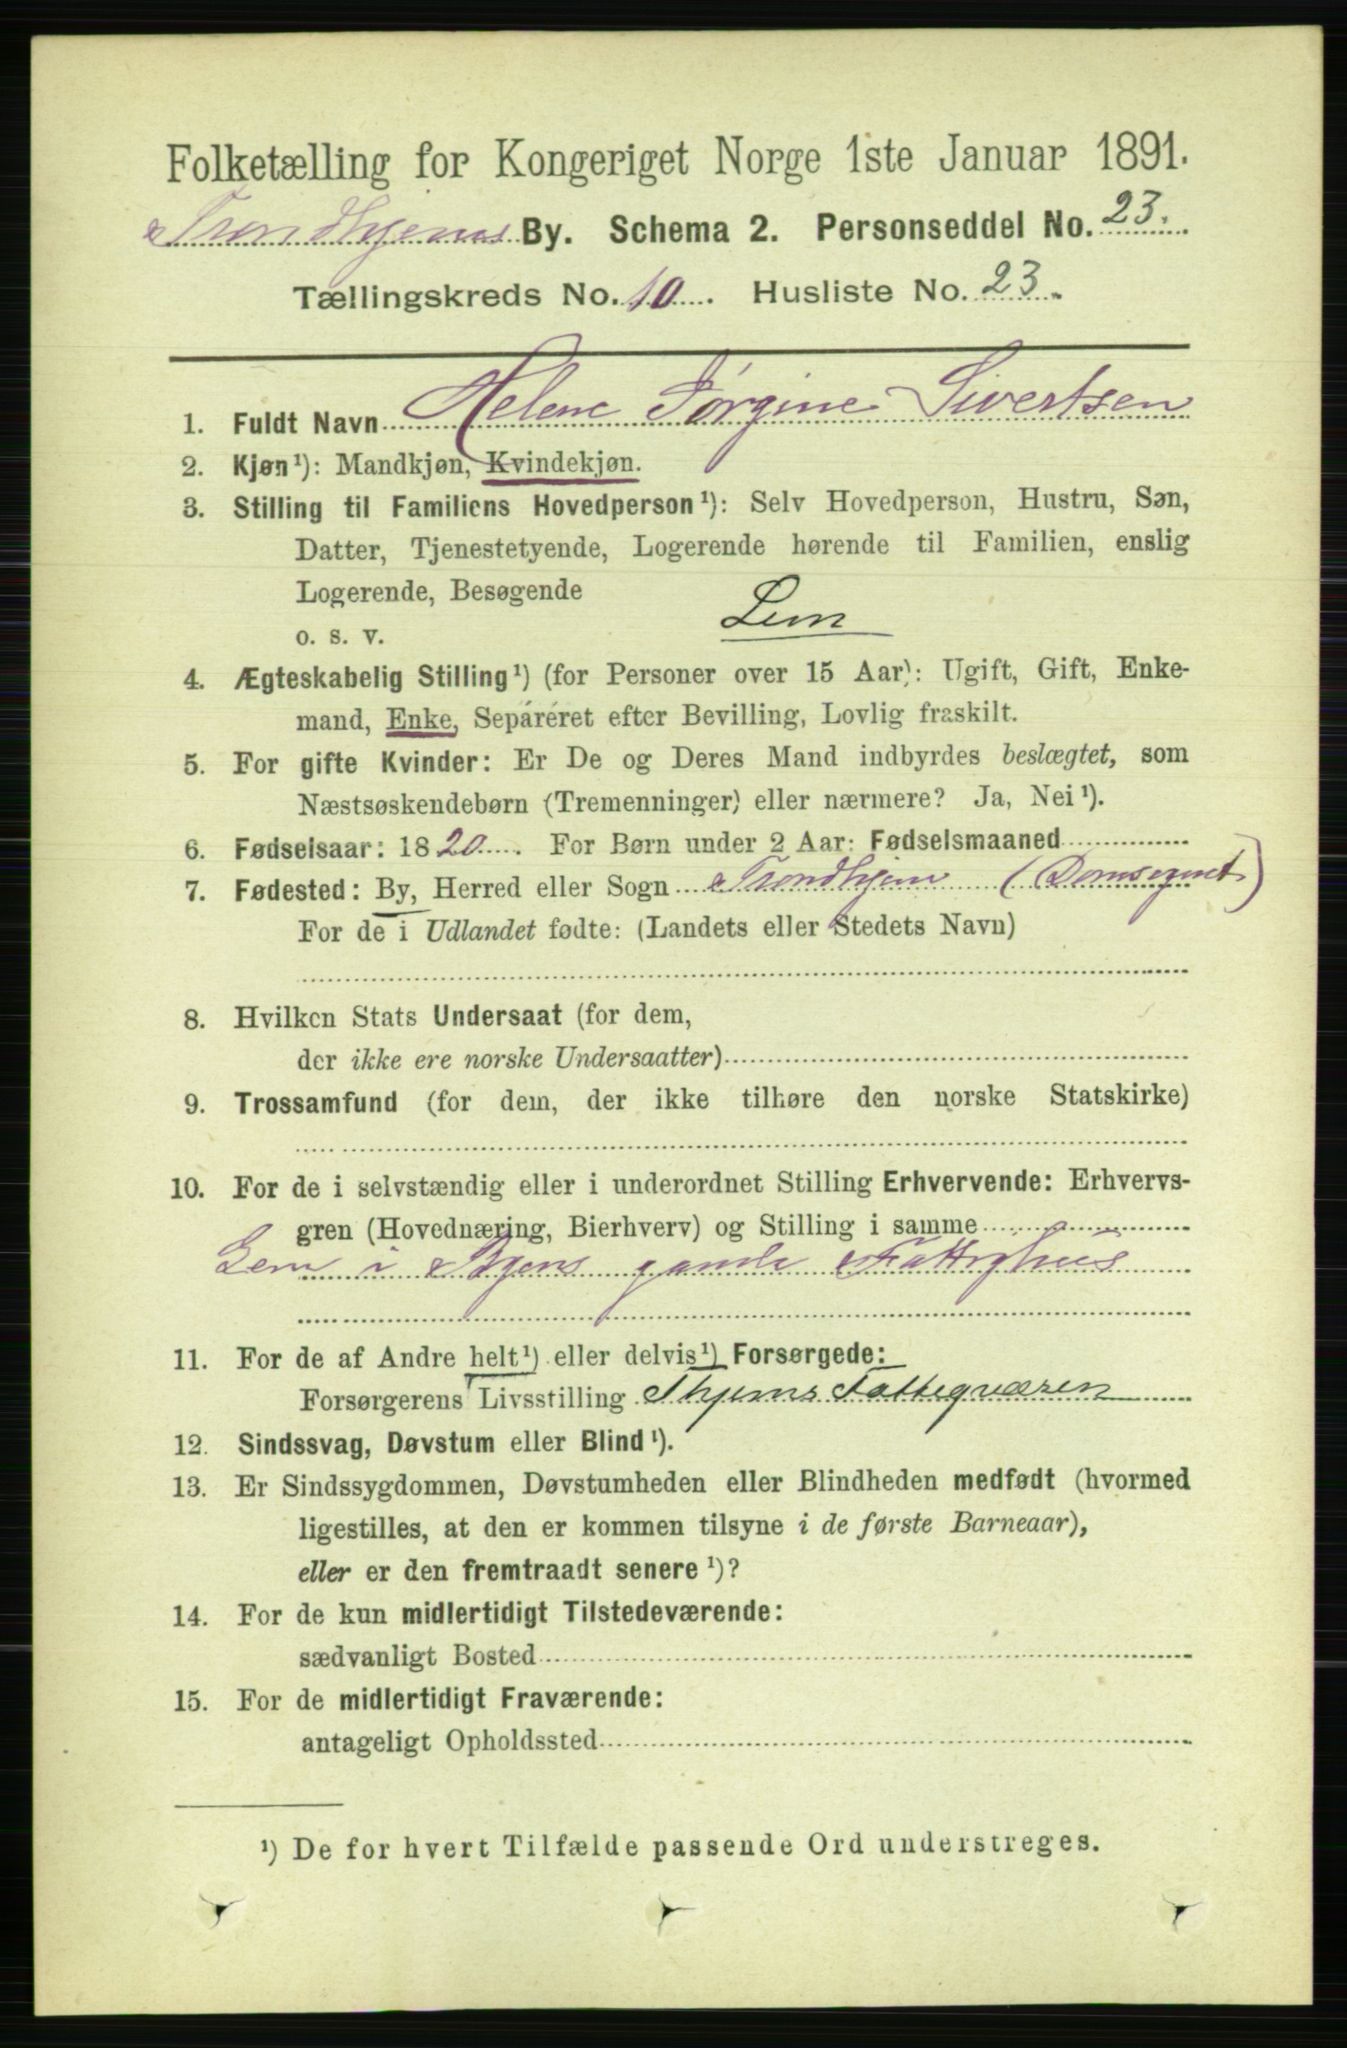 Folketælling for Kongeriget Norge 1ste Januar 1891.
Trondhjems By. Schema 2. Personseddel No. 23.
Tællingskreds No. 10. Husliste No. 23.
1. Fuldt Navn Helene Jørgine Sivertsen
2. Kjøn¹): Mandkjøn, Kvindekjøn.
3. Stilling til Familiens Hovedperson¹): Selv Hovedperson, Hustru, Søn,
Datter, Tjenestetyende, Logerende hørende til Familien, enslig
Logerende, Besøgende
o. s. v. Lem
4. Ægteskabelig Stilling¹) (for Personer over 15 Aar): Ugift, Gift, Enke-
mand, Enke, Separeret efter Bevilling, Lovlig fraskilt.
5. For gifte Kvinder: Er De og Deres Mand indbyrdes beslægtet, som
Næstsøskendebørn (Tremenninger) eller nærmere? Ja, Nei¹).
6. Fødselsaar: 1820. For Børn under 2 Aar: Fødselsmaaned
7. Fødested: By, Herred eller Sogn Trondhjem (Domsognet)
For de i Udlandet fødte: (Landets eller Stedets Navn)
8. Hvilken Stats Undersaat (for dem,
der ikke ere norske Undersaatter)
9. Trossamfund (for dem, der ikke tilhøre den norske Statskirke)
10. For de i selvstændig eller i underordnet Stilling Erhvervende: Erhvervs-
gren (Hovednæring, Bierhverv) og Stilling i samme
Lem i Byens gamle Fattighus
11. For de af Andre helt¹) eller delvis¹) Forsørgede:
Forsørgerens Livsstilling Thjems Fattigvæsen
12. Sindssvag, Døvstum eller Blind¹).
13. Er Sindssygdommen, Døvstumheden eller Blindheden medfødt (hvormed
ligestilles, at den er kommen tilsyne i de første Barneaar),
eller er den fremtraadt senere¹)?
14. For de kun midlertidigt Tilstedeværende:
sædvanligt Bosted
15. For de midlertidigt Fraværende:
antageligt Opholdssted
¹) De for hvert Tilfælde passende Ord understreges.